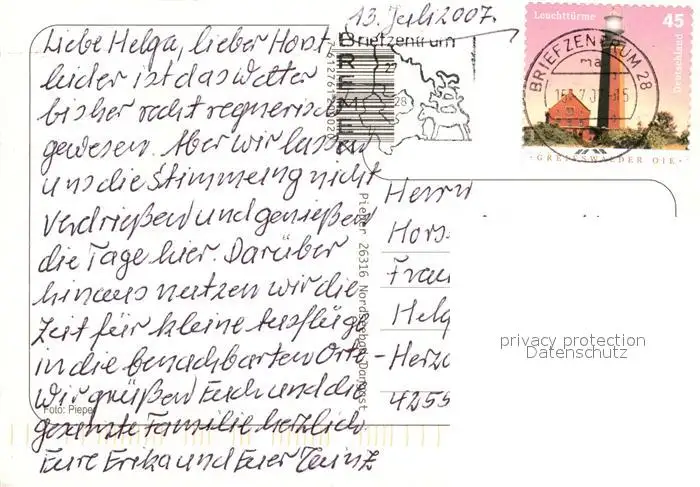 13. Juli 2007.
Liebe Helga, lieber Horst
leider ist das Wetter
bisher recht regnerisch
gewesen. Aber wir lassen
uns die Stimmung nicht
verdrießen und genießen
die Tage hier. Darüber
hinaus nutzen wir die
Zeit für kleine Ausflüge
in die benachbarten Orte-
Wir grüßen Euch und die
gesamte Familie herzlich
Eure Erika und Euer Heinz
Foto: Pieper
BREMEN
Briefzentrum
28
Pieper 26316 Nordseebad Dangast
Leuchttürme
45
Deutschland
BRIEFZENTRUM 28
GREIFSWALDER OIE
Herrn
Hors
Frau
Helg
Herzo
4255
privacy protection
Datenschutz